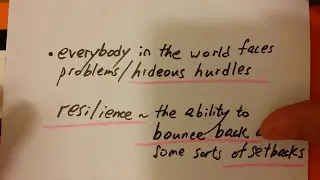 • everybody in the world faces
problems/hideous hurdles
resilience ~ the ability to
bounce back
some sorts of setbacks